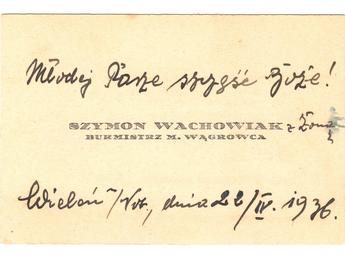 Młodej Parze szczęść Boże!
SZYMON WACHOWIAK z Żoną
BURMISTRZ M. WĄGROWCA
Wieleń n/Not., dnia 22/IV. 1936.